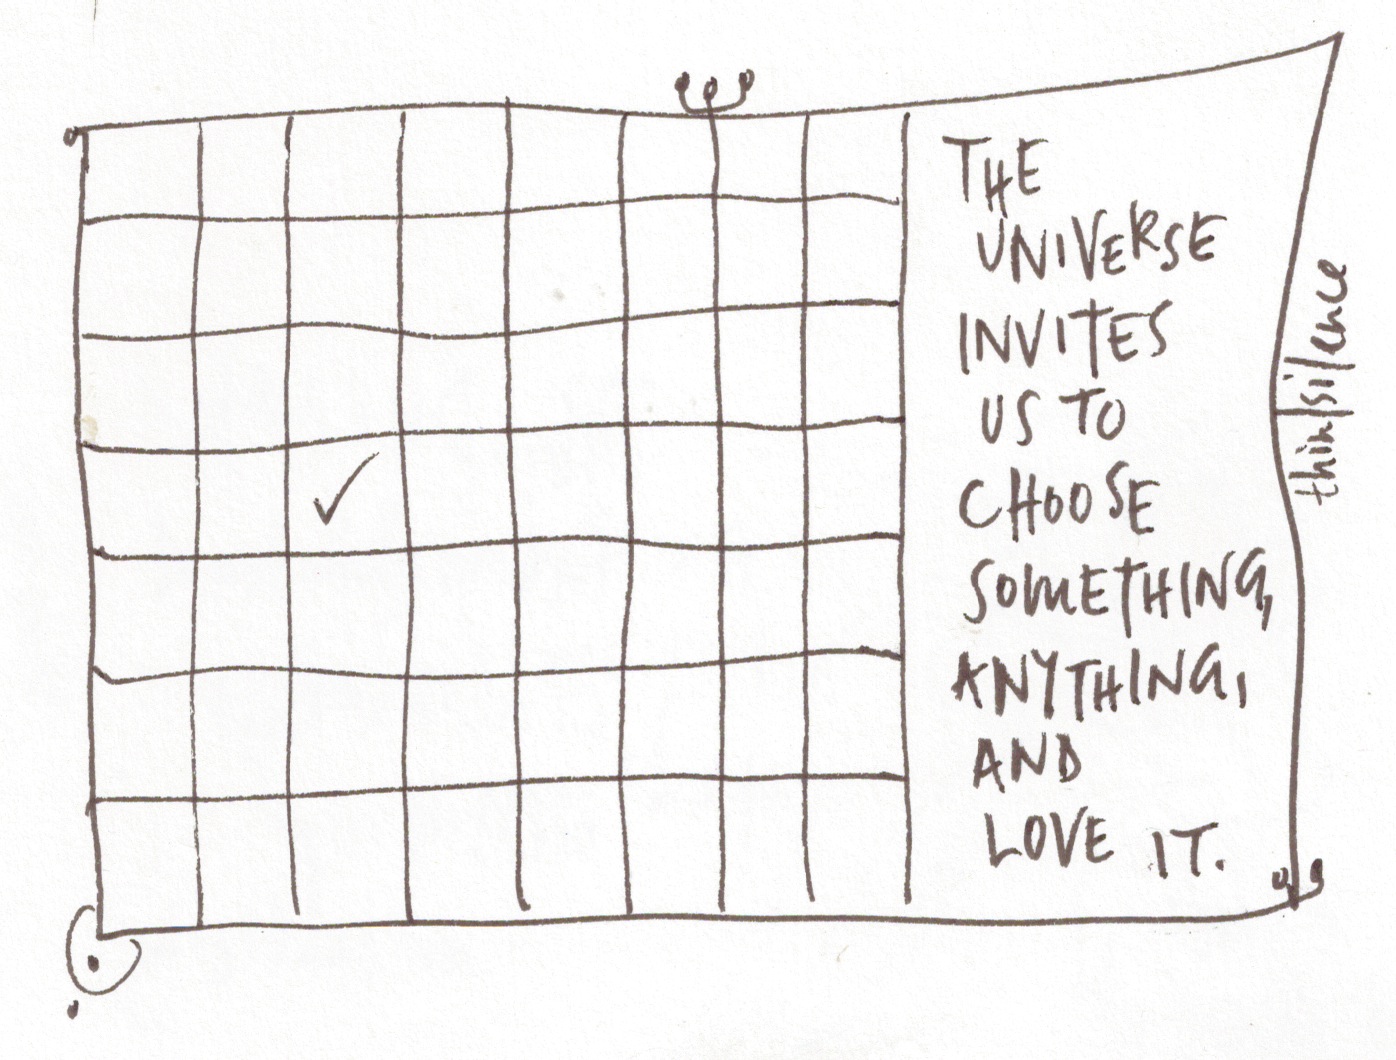 THE
UNIVERSE
INVITES
US TO
CHOOSE
SOMETHING,
ANYTHING,
AND
LOVE IT.
think/silence